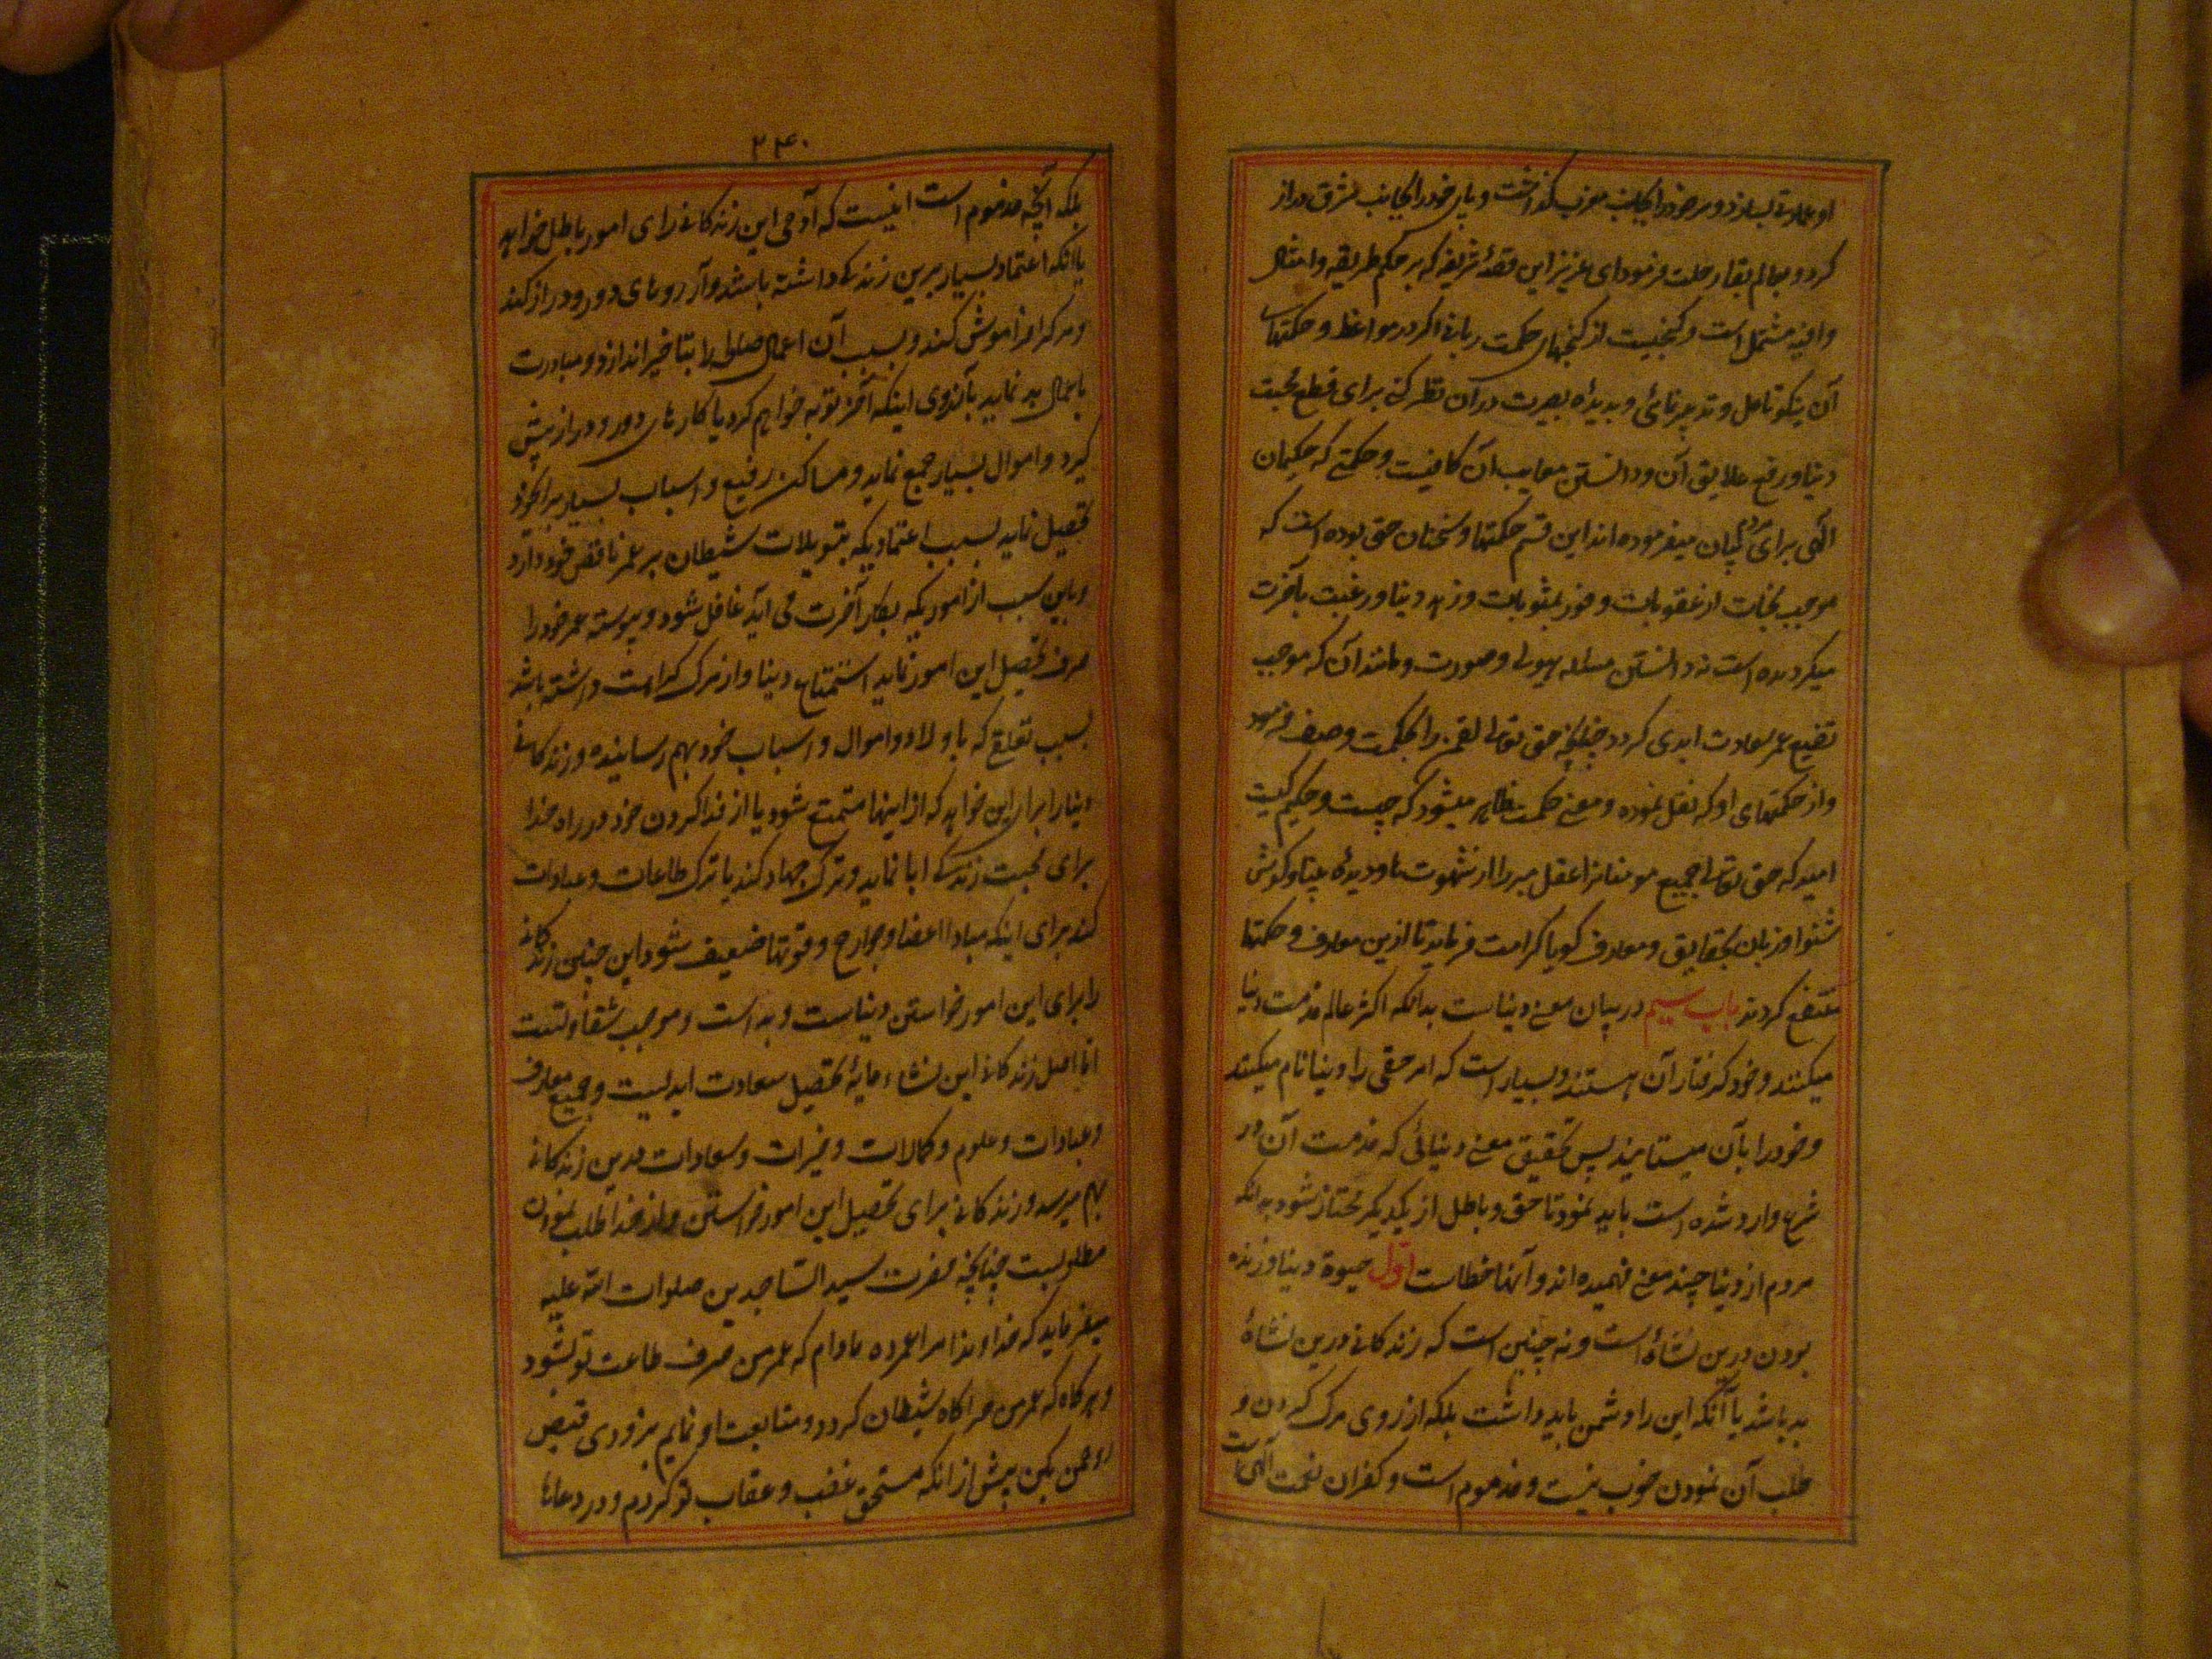 او عمارتی بسازد و سر خود را بجانب مغرب گذاشت و پای خود را بجانب مشرق دراز
کرد و بعالم بقا رحلت فرمود ای عزیز این قصهٔ شریفه که بر حکم طریقه و امثال
وافیه مشتمل است و گنجیست از گنجهای حکمت ربانی اگر در مواعظ و حکمتهای
آن نیکو تامل و تدبر نمائی و بدیدهٔ بصیرت در آن نظر کنی برای قطع محبت
دنیا و رفع علایق آن و دانستن معایب آن کافیست و حکمتی که حکیمان
الهی برای مردم بیان میفرموده اند این قسم حکمتها و سخنان حق بوده است که
موجب نجات از عقوبات و فوز بمثوبات و زهد دنیا و رغبت بآخرت
میگردیده است نه دانستن مساله هیولی و صورت و مانند آن که موجب
تضیع عمر سعادت ابدی گردد چنانچه حق تعالی لقمن را بحکمت وصف فرمود
و از حکمتهای او که نقل نموده و معنی حکمت ظاهر میشود که چیست و حکیم کیست
امید که حق تعالی جمیع مومنانرا عقل مبرا از شهوت ها و دیدهٔ بینا و گوش
شنوا و زبان بحقایق و معارف گویا کرامت فرماید تا ازین معارف و حکمتها
منتفع گردند باب سیم در بیان معنی دنیاست بدانکه اکثر عالم مذمت دنیا
میکنند و خود گرفتار آن هستند و بسیار است که امر حقی را دنیا نام میکنند
و خود را بآن میستایند پس تحقیق معنی دنیائی که مذمت آن در
شرع وارد شده است باید نمود تا حق و باطل از یکدیگر ممتاز شود بدانکه
مردم از دنیا چند معنی فهمیده اند و آنها خطاست اول حیوة دنیا و زنده
بودن درین نشاهٔ است و نه چنین است که زندگانی درین نشاهٔ
بد باشد یا آنکه این را دشمن باید داشت بلکه آرزوی مرگ کردن و
طلب آن نمودن خوب نیست و مذموم است و کفران نعمت الهی است
۲۴۰
بلکه آنچه مذموم است انیست که آدمی این زندگانی را برای امور باطل خواهد
یا آنکه اعتماد بسیار برین زندگی داشته باشد و آرزوهای دور و دراز کند
و مرگ را فراموش کند و بسبب آن اعمال صالح را بتاخیر اندازد و مبادرت
باعمال بد نماید بآرزوی اینکه آخر توبه خواهم کرد یا کارهای دور و دراز پیش
گیرد و اموال بسیار جمع نماید و مساکن رفیع و اسباب بسیار برای خود
تحصیل نماید بسبب اعتمادیکه بتسویلات شیطان بر عمر ناقص خود دارد
و باین سبب از اموریکه بکار آخرت می آید غافل شود و پیوسته عمر خود را
صرف تحصیل این امور نماید استمتاع دنیا و از مرگ کراهت داشته باشد
بسبب تعلقی که باولاد و اموال و اسباب خود بهم رسانیده و زندگانی
دنیا را برای این خواهد که از اینها متمتع شود یا از فدا کردن خود در راه خدا
برای محبت زندگی ابا نماید و ترک جهاد کند یا ترک طاعات و عبادات
کند برای اینکه مبادا اعضا و جوارح و قوتها ضعیف شود این چنین زندگانی
را برای این امور خواستن دنیاست و بد است و موجب شقاوتست
اما اصل زندگانی این نشاء مایهٔ تحصیل سعادت ابدیست و جمیع معارف
و عبادات و علوم و کمالات و خیرات و سعادات بدین زندگانی
بهم میرسد و زندگانی برای تحصیل این امور خواستن و از خدا طلب نمودن
مطلوبست چنانچه حضرت سید الساجدین صلوات الله علیه
میفرماید که خداوندا مرا عمر ده مادام که عمر من صرف طاعت تو شود
و هرگاه که عمر من چراگاه شیطان گردد و متابعت او نمایم بزودی قبض
روح من بکن پیش از انکه مستحق غضب و عقاب تو گردم و در دعاها